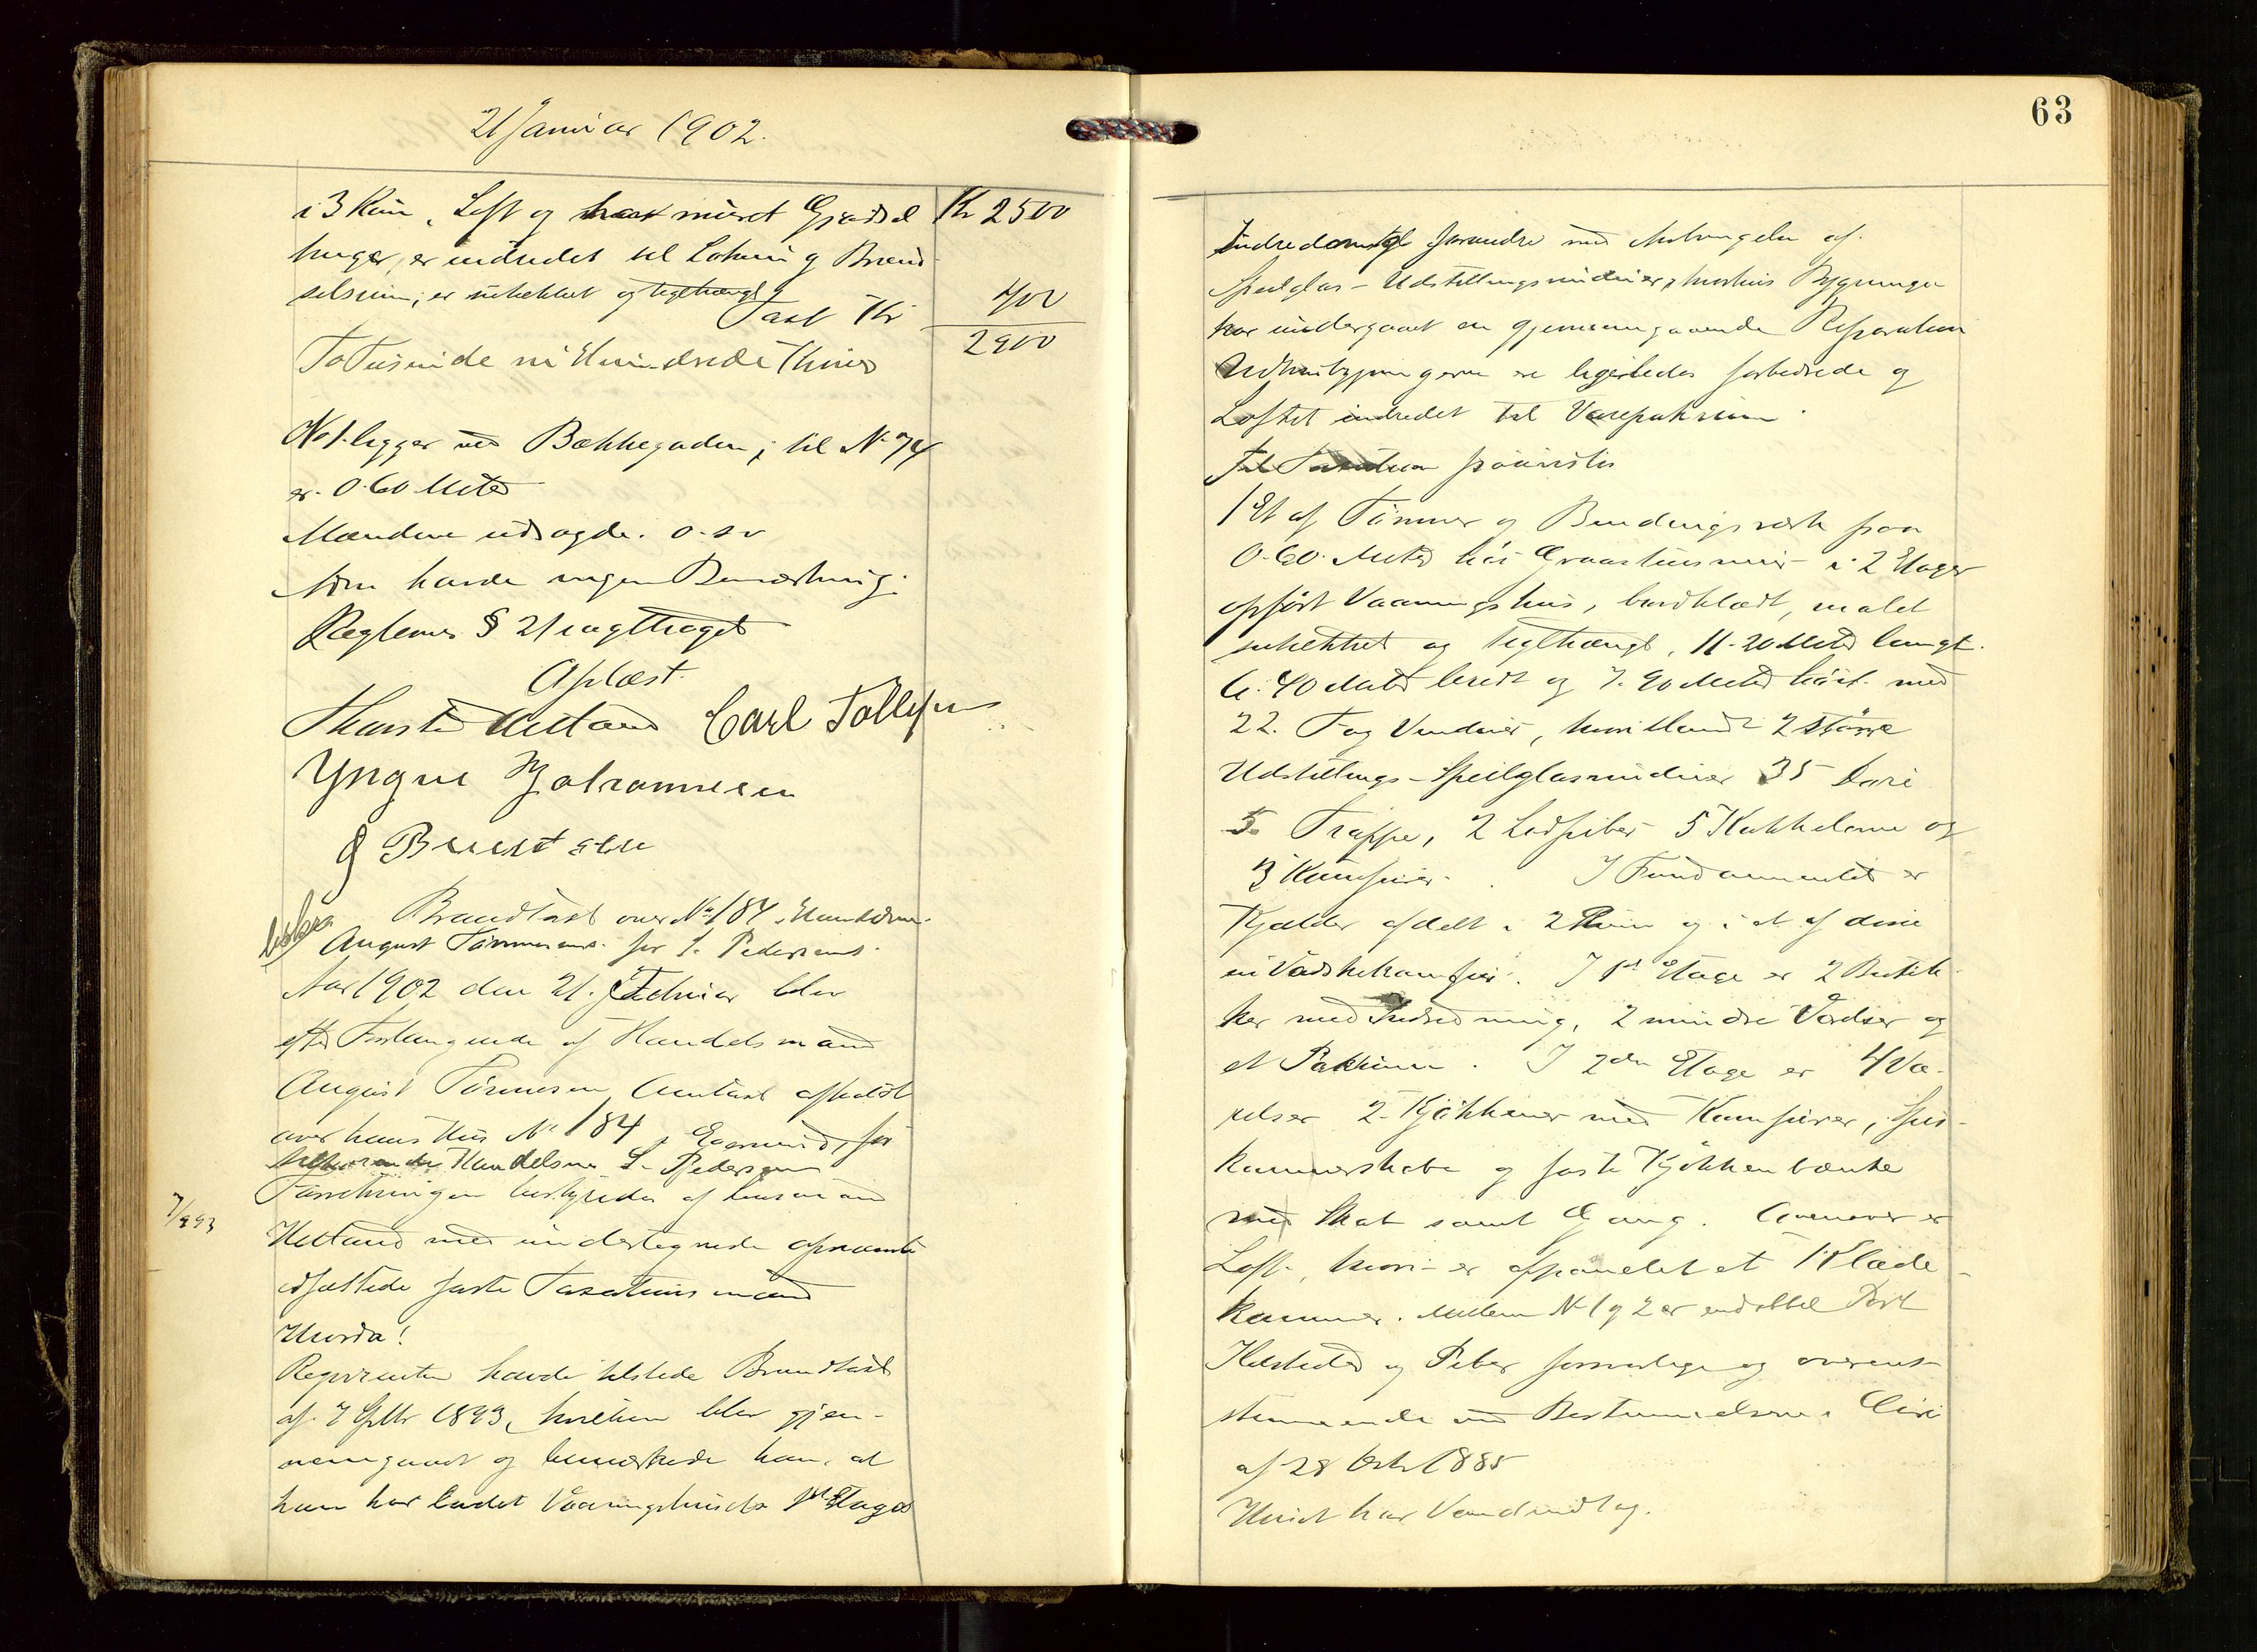 21 Januar 1902.
i 3 Rum, Loft og har muret Gjødsel Kr 2500
binger, er indredet til Lokum og Brænd-
selsrum; er suhekket og teglhængt
Taxt Kr 400
To Tusinde ni Hundrede Kroner 2900
No 1 ligger ved Bækkegaden; til No 74
er 0.60 Meter
Mændene udsagde. o.s.v
Som havde ingen Bemærkning.
Reglemes § 21 iagttaget
Oplæst.
Hetland Carl Tollefsen
Yngve Johannesen
Brandtaxt over No 184
August Tønnesens før S. Pedersens
Aar 1902 den 21. Februar blev
efter Forlangende af Handelsmand
August Tønnesen Omtaxt afholdt
over hans Hus No 184 Egersund, før
tilhørende Handelsm. S. Pedersen
Forretningen bestyredes af Lensmand
7/9 93
Hetland med undertegnede opnævnte
edfæstede faste Taxationsmænd
Hvorda!
Rekvirenten havde tilstede Brandtaxt
af 7 Septbr 1893, hvilken blev gjen-
nemgaaet og bemærkede han, at
han har ladet Vaaningshusets 1st Etages
63
Indredning forandre med Anbringelse af
Speilglas-Udstillingsvinduer, hvorhos Bygningen
har undergaaet en gjennemgaaende Reparation
Udhusbygningerne ere ligeledes forbedrede og
Loftet indredet til Varepakrum.
Til Taxation paavistes
1 Et af Tømmer og Bindingsverk paa
0.60 Meter høi Graastensmur i 2 Etager
opført Vaaningshus, bordklædt, malet
suhekket og teglhængt, 11.20 Meter langt
6.40 Meter bredt og 7.90 Meter høit med
22 Fag Vinduer, hvoriblandt 2 større
Udstillings-Speilglasvinduer 35 Døre
5 Trappe, 2 Lodpiber 5 Kakkelovne og
3 Komfurer. I Fundamentet er
Kjælder afdelt i 2 Rum og i et af disse
en Vadskekomfur. I 1st Etage er 2 Butik-
ker med Indredning, 2 mindre Værelser og
et Pakrum. I 2den Etage er 4 Væ-
relser 2 Kjøkkener med Komfurer, Spis-
kammerskabe og faste Kjøkkenbænke
med Skab samt Gang. Ovenover er
Loft, hvori er afpanelet et Klæde-
kammer. Mellem No 1 og 2 er en dobbel Port
Ildsteder og Piber forsvarlige og overens-
stemmende med Bestemmelserne i Circ
af 28 Octr 1885
Huset har Vandindlæg.